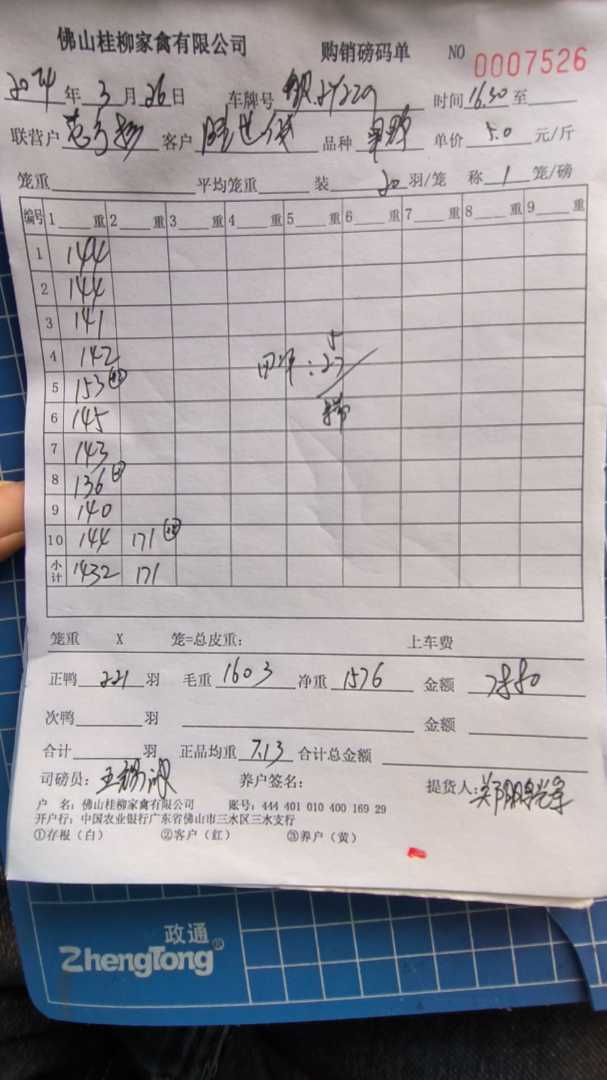 佛山桂柳家禽有限公司 购销磅码单 NO 0007526
2024年3月26日 车牌号 时间16.30至
联营户 客户 品种 单价 5.0 元/斤
笼重 平均笼重 装 20 羽/笼 称 1 笼/磅
编号 1 重 2 重 3 重 4 重 5 重 6 重 7 重 8 重 9 重
1 144
2 144
3 141
4 142
5 153
6 145
7 143
8 136
9 140
10 144 171
小计 1432 171
5
: 27
笼重 X 笼=总皮重: 上车费
正鸭 221 羽 毛重 1603 净重 1576 金额 7880
次鸭 羽 金额
合计 羽 正品均重 7.13 合计总金额
司磅员: 养户签名: 提货人:
户 名: 佛山桂柳家禽有限公司 账号: 444 401 010 400 169 29
开户行: 中国农业银行广东省佛山市三水区三水支行
①存根(白) ②客户(红) ③养户(黄)
政通
ZhengTong®